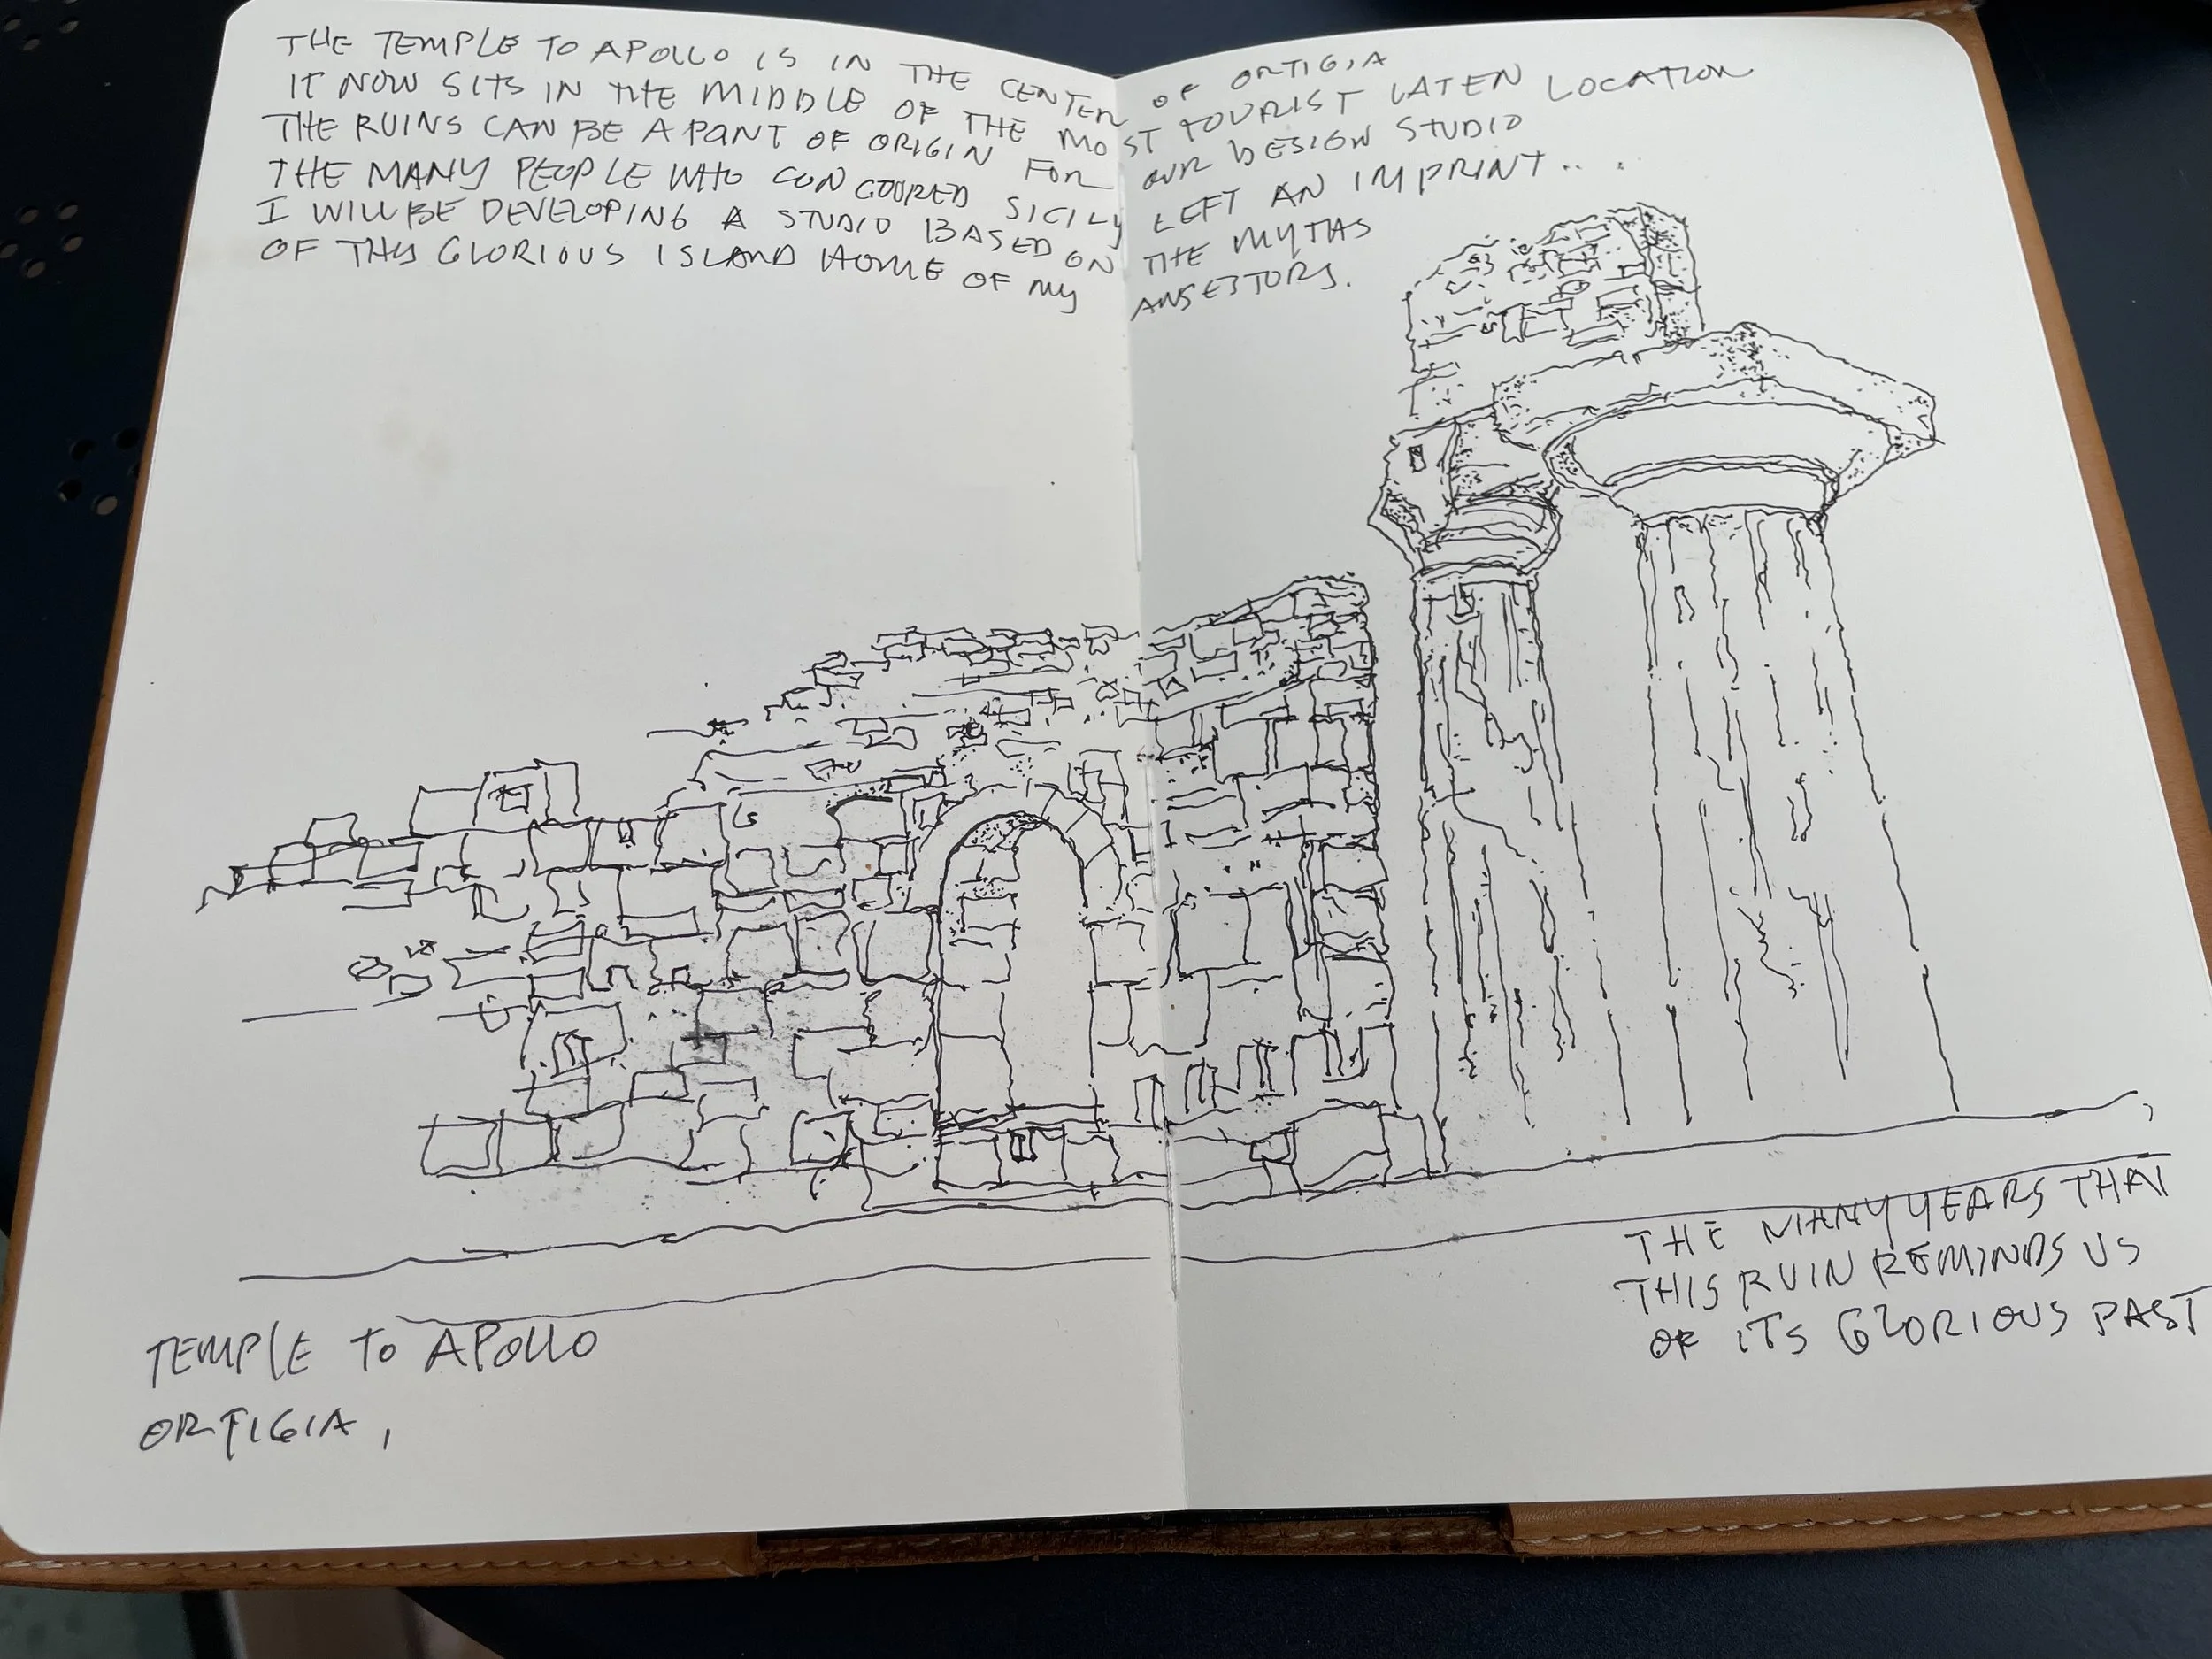 THE TEMPLE TO APOLLO IS IN THE CENTER OF ORTIGIA
IT NOW SITS IN THE MIDDLE OF THE MOST TOURIST LATEN LOCATION
THE RUINS CAN BE A PONT OF ORIGIN FOR OUR DESIGN STUDIO
THE MANY PEOPLE WHO CONCOURED SICILY LEFT AN IMPRINT....
I WILL BE DEVELOPING A STUDIO BASED ON THE MYTHS
OF THIS GLORIOUS ISLAND HOME OF MY ANSESTORS.
THE MANY YEARS THAT
THIS RUIN REMINDS US
OF ITS GLORIOUS PAST
TEMPLE TO APOLLO
ORTIGIA,